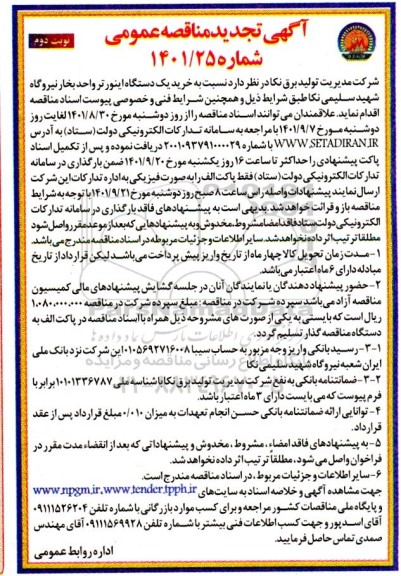 آگهی تجدید مناقصه عمومی
شماره ۱۴۰۱/۲۵
نوبت دوم
شرکت مدیریت تولید برق نکا در نظر دارد نسبت به خرید یک دستگاه اینورتر واحد بخار نیروگاه
شهید سلیمی نکا طبق شرایط ذیل و همچنین شرایط فنی و خصوصی پیوست اسناد مناقصه
اقدام نماید. علاقمندان می توانند اسناد مناقصه را از روز دوشنبه مورخ ۱۴۰۱/۸/۳۰ لغایت روز
دوشنبه مورخ ۱۴۰۱/۹/۷ با مراجعه به سامانه تدارکات الکترونیکی دولت (ستاد) به آدرس
WWW.SETADIRAN.IR با شماره ۲۰۰۱۰۹۳۷۹۱۰۰۰۰۲۹ دریافت نموده و پس از تکمیل اسناد
پاکت پیشنهادی را حداکثر تا ساعت ۱۶ روز یکشنبه مورخ ۱۴۰۱/۹/۲۰ ضمن بارگذاری در سامانه
تدارکات الکترونیکی دولت (ستاد) فقط پاکت الف را به صورت فیزیکی به اداره تدارکات این شرکت
ارسال نمایند پیشنهادات واصله راس ساعت ۸ صبح روز دوشنبه مورخ ۱۴۰۱/۹/۲۱ با توجه به شرایط
مناقصه باز و قرائت خواهد شد. بدیهی است به پیشنهادهای فاقد بارگذاری در سامانه تدارکات
الکترونیکی دولت (ستاد) فاقد امضا مشروط، مخدوش و به پیشنهادهایی که بعد از موعد مقرر واصل شود
مطلقا ترتیب اثر داده نخواهد شد. سایر اطلاعات و جزئیات مربوطه در اسناد مناقصه مندرج می باشد.
۱- مدت زمان تحویل کالا چهار ماه از تاریخ واریز پیش پرداخت می باشد لیکن قرارداد از تاریخ
مبادله دارای ۶ ماه اعتبار می باشد.
۲- حضور پیشنهاد دهندگان یا نمایندگان آنان در جلسه گشایش پیشنهادهای مالی کمیسیون
مناقصه آزاد می باشد. سپرده شرکت در مناقصه : مبلغ سپرده شرکت در مناقصه ۱.۰۸۰.۰۰۰.۰۰۰
ریال است که بایستی به یکی از صورت های مشروحه ذیل همراه با اسناد مناقصه در پاکت الف به
دستگاه مناقصه گذار تسلیم گردد.
۳-۱- رسید بانکی واریز وجه مزبور به حساب سیبا ۰۱۰۵۶۹۲۷۱۶۰۰۸ این شرکت نزد بانک ملی
ایران شعبه نیروگاه شهید سلیمی نکا
۳-۲- ضمانتنامه بانکی به نفع شرکت مدیریت تولید برق نکا با شناسه ملی ۱۰۱۰۱۳۳۶۷۸۷ برابر با
فرم پیوست که می بایست دارای ۳ ماه اعتبار باشد.
۴- توانایی ارائه ضمانتنامه بانکی حسن انجام تعهدات به میزان ۰/۰۱۰ مبلغ قرارداد پس از عقد
قرارداد.
۵- به پیشنهادهای فاقد امضاء، مشروط، مخدوش و پیشنهاداتی که بعد از انقضاء مدت مقرر در
فراخوان واصل می شود، مطلقاً ترتیب اثر داده نخواهد شد.
۶- سایر اطلاعات و جزئیات مربوط، در اسناد مناقصه مندرج است.
جهت مشاهده آگهی و خلاصه اسناد به سایت های www.tender.tpph.ir، www.npgm.ir
و پایگاه ملی مناقصات کشور مراجعه و برای کسب موارد بازرگانی با شماره تلفن ۰۹۱۱۱۵۲۶۲۰۴
آقای اسدپور و جهت کسب اطلاعات فنی بیشتر با شماره تلفن ۰۹۱۱۱۵۶۹۹۲۸ آقای مهندس
صمدی تماس حاصل فرمایید.
اداره روابط عمومی